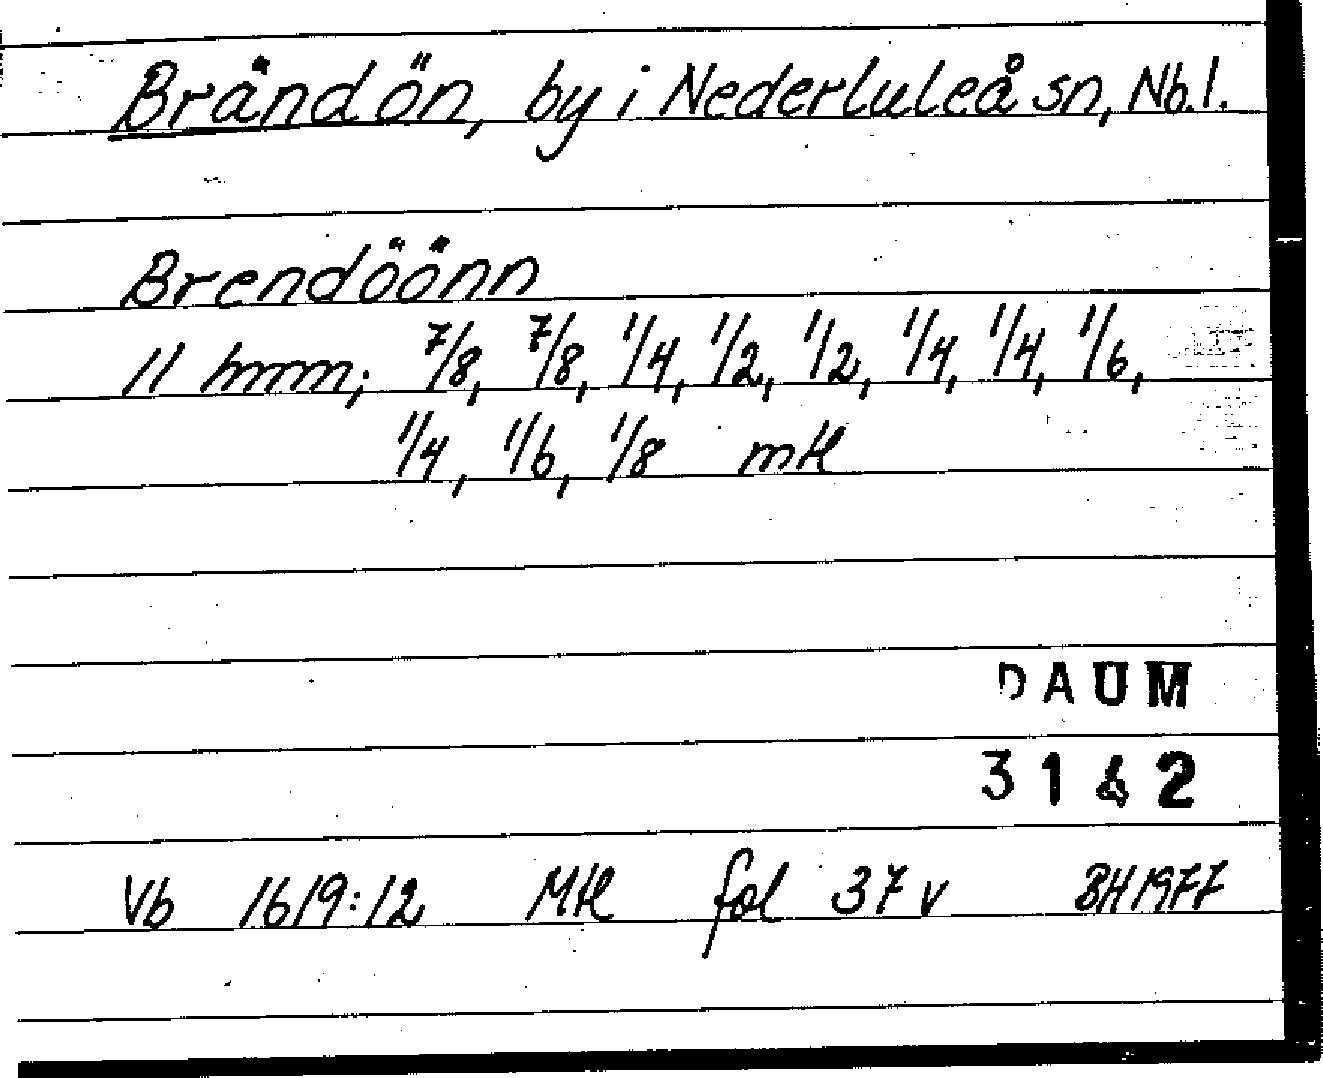 Brändön, by i Nederluleå sn, Nb.l.
Brendöönn
11 hmm; 7/8, 7/8, 1/4, 1/2, 1/2, 1/4, 1/4, 1/6,
1/4, 1/6, 1/8 mtl
DAUM
3142
Vb 1619:12 Mtl fol 37 v BH 1977